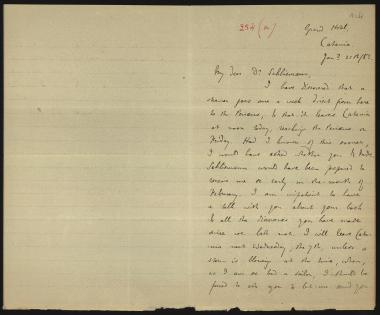 254 (a)
Grand Hôtel,
Catania
My dear Dr. Schliemann,
I have discovered that a
steamer goes once a week direct from here
to the Piraeus, & that it leaves Catania
at noon today, reaching the Piraeus on
Friday. Had I known of this sooner,
I would have asked whether you & Mdm.
Schliemann would have been prepared to
receive me so early in the month of
February. I am impatient to have
a talk with you about your book
& all the discoveries you have made
since we last met. I will leave Cata-
nia next Wednesday, the 7th, unless a
storm is blowing at the time, when,
as I am so bad a sailor, I should be
forced to ask you to let me send you